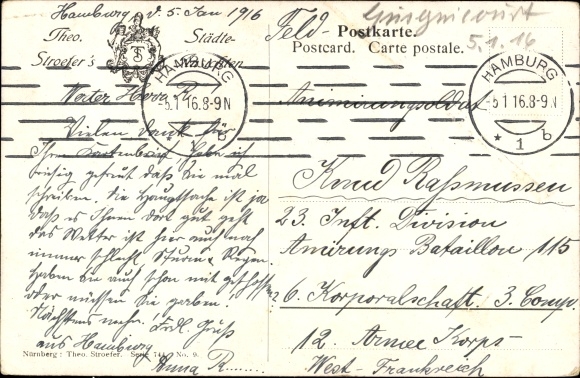 Hamburg d. 5. Jan 1916
Theo. Städte-
Stroefer's Ansichten
TS
Feld- Postkarte.
Postcard. Carte postale.
Guignicourt
5.1.16
HAMBURG
-5.1 16.8-9N
* 1 b
HAMBURG
-5.1 16.8-9N
* 1 b
Werter Herr R.
Vielen Dank für
Ihren Kartenbrief, habe ich
gefreut daß Sie mal
schreiben. Die Hauptsache ist ja
daß es Ihnen dort gut geht
das Wetter ist hier auch noch
immer schlecht Sturm u. Regen.
Haben Sie auch schon mit geschossen
oder müssen Sie graben?
Nächstens mehr. Frdl. Gruß
aus Hamburg
Anna R........
Armirungssoldat
Knud Raßmussen
23. Inft. Division
Amirungs Bataillon 115
6. Korporalschaft. 3. Comp.
12. Armee Korps-
West-Frankreich
Nürnberg: Theo. Stroefer. Serie 744 No. 9.